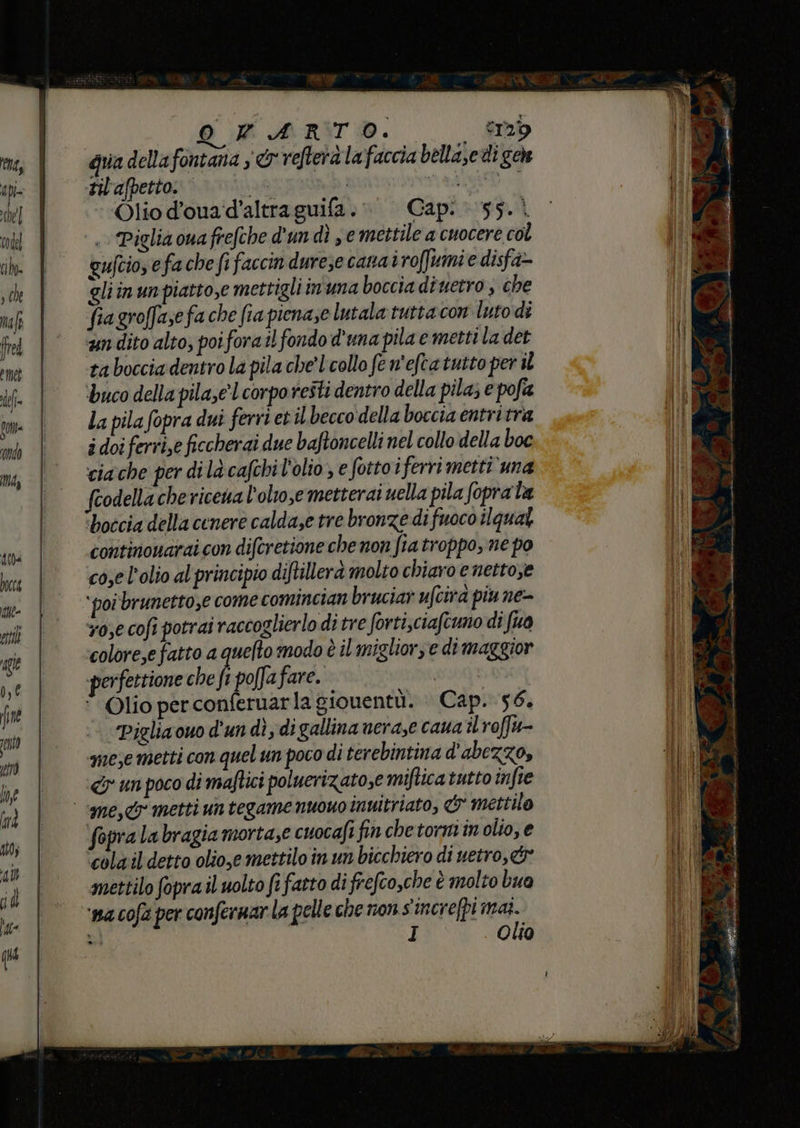 Q V A R T O. 129
qua della fontana, & resterà la faccia bella, e di gen
til aspetto.
Olio d'oua d'altra guisa. Cap. 55.
Piglia oua fresche d'un dì, e mettile a cuocere col
guscio, e fa che si faccin dure, e caua i rossumi e disfa-
gli in un piatto, e mettigli in una boccia di uetro, che
sia grossa, e fa che sia piena, e lutala tutta con luto di
un dito alto, poi fora il fondo d'una pila e metti la det
ta boccia dentro la pila che'l collo se n'esca tutto per il
buco della pila, e'l corpo resti dentro della pila; e posa
la pila sopra dui ferri et il becco della boccia entri tra
i doi ferri, e ficcherai due bastoncelli nel collo della boc
cia che per di là caschi l'olio, e sotto i ferri metti una
scodella che riceua l'olio, e metterai nella pila sopra la
boccia della cenere calda, e tre bronze di fuoco ilqual
continouarai con discretione che non sia troppo, ne po
co, e l'olio al principio distillerà molto chiaro e netto, e
poi brunetto, e come comincian bruciar uscirà piu ne-
ro, e cosi potrai raccoglierlo di tre sorti, ciascuno di suo
colore, e fatto a questo modo è il miglior, e di maggior
perfettione che si possa fare.
Olio per conseruar la giouentù. Cap. 56.
Piglia ouo d'un dì, di gallina nera, e caua il rossu-
me, e metti con quel un poco di terebintina d'abezzo,
& un poco di mastici poluerizato, e mistica tutto insie
me, & metti un tegame nuouo inuitriato, & mettilo
sopra la bragia morta, e cuocasi fin che torni in olio, e
cola il detto olio, e mettilo in un bicchiero di uetro, &
mettilo sopra il uolto si fatto di fresco, che è molto buo
na cosa per conseruar la pelle che non s'increspi mai.
I Olio